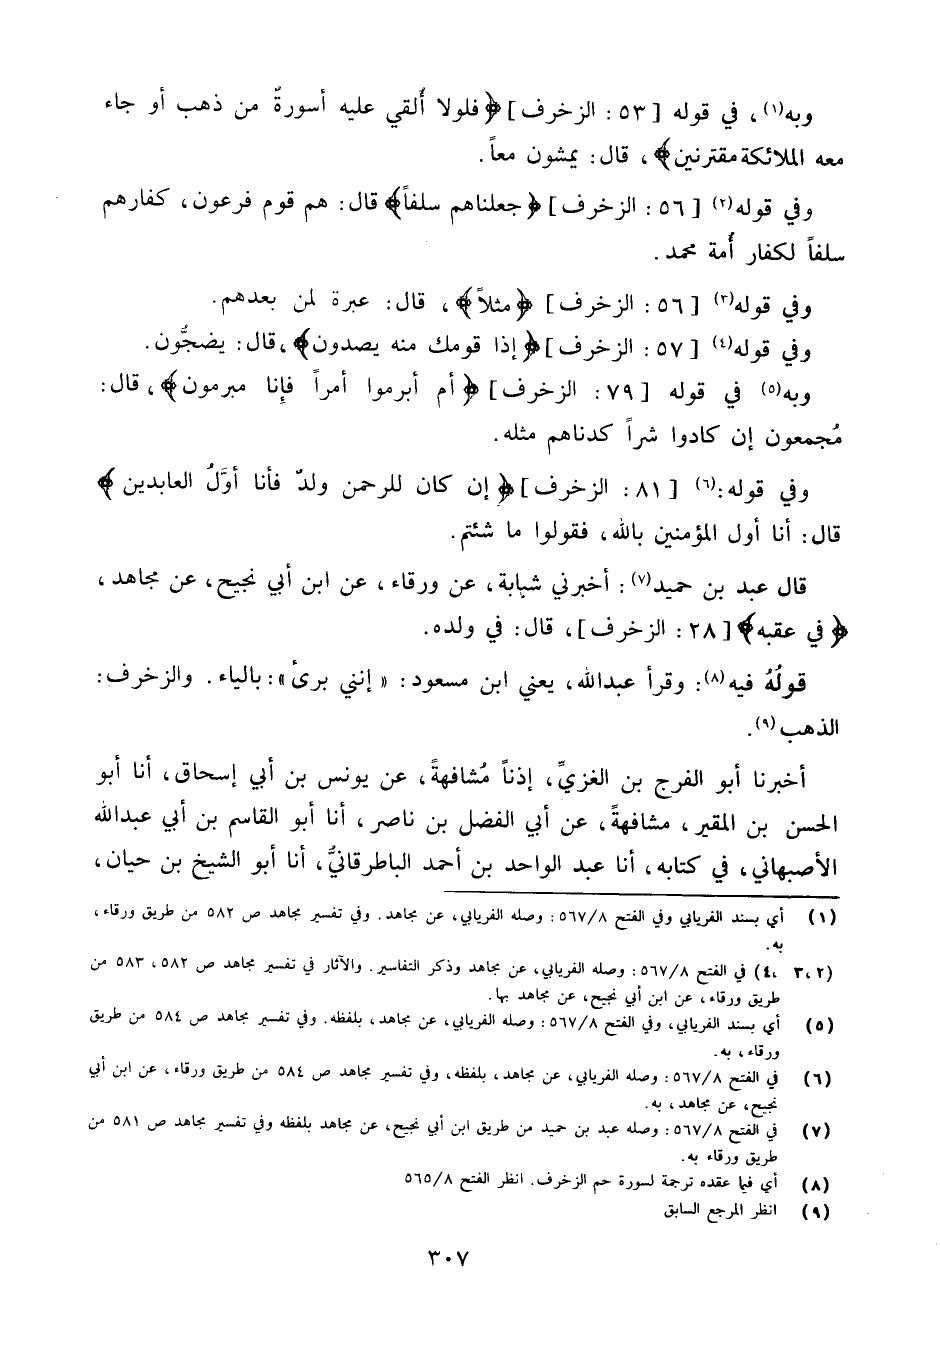 وبه(١)، في قوله [٥٣: الزخرف] ﴿فلولا أُلقي عليه أسورةٌ من ذهب أو جاء
معه الملائكة مقترنين﴾، قال: يمشون معاً.
وفي قوله(٢) [٥٦: الزخرف] ﴿جعلناهم سلفاً﴾ قال: هم قوم فرعون، كفارهم
سلفاً لكفار أُمة محمد.
وفي قوله(٣) [٥٦: الزخرف] ﴿مثلاً﴾، قال: عبرة لمن بعدهم.
وفي قوله(٤) [٥٧: الزخرف] ﴿إذا قومك منه يصدون﴾، قال: يضجُّون.
وبه(٥) في قوله [٧٩: الزخرف] ﴿أم أبرموا أمراً فإنا مبرمون﴾، قال:
مُجمعون إن كادوا شراً كدناهم مثله.
وفي قوله:(٦) [٨١: الزخرف] ﴿إن كان للرحمن ولدٌ فأنا أوَّلُ العابدين﴾
قال: أنا أول المؤمنين بالله، فقولوا ما شئتم.
قال عبد بن حميد(٧): أخبرني شبابة، عن ورقاء، عن ابن أبي نجيح، عن مجاهد،
﴿في عقبه﴾ [٢٨: الزخرف]، قال: في ولده.
قولُهُ فيه(٨): وقرأ عبدالله، يعني ابن مسعود: «إنني برىٌ»: بالياء. والزخرف:
الذهب(٩).
أخبرنا أبو الفرج بن الغزيِّ، إذناً مُشافهةً، عن يونس بن أبي إسحاق، أنا أبو
الحسن بن المقير، مشافهةً، عن أبي الفضل بن ناصر، أنا أبو القاسم بن أبي عبدالله
الأصبهاني، في كتابه، أنا عبد الواحد بن أحمد الباطرقانيُّ، أنا أبو الشيخ بن حيان،
(١) أي بسند الفريابي وفي الفتح ٥٦٧/٨: وصله الفريابي، عن مجاهد. وفي تفسير مجاهد ص ٥٨٢ من طريق ورقاء،
به.
(٢، ٣، ٤) في الفتح ٥٦٧/٨: وصله الفريابي، عن مجاهد وذكر التفاسير. والآثار في تفسير مجاهد ص ٥٨٢، ٥٨٣ من
طريق ورقاء، عن ابن أبي نجيح، عن مجاهد بها.
(٥) أي بسند الفريابي، وفي الفتح ٥٦٧/٨: وصله الفريابي، عن مجاهد، بلفظه. وفي تفسير مجاهد ص ٥٨٤ من طريق
ورقاء، به.
(٦) في الفتح ٥٦٧/٨: وصله الفريابي، عن مجاهد، بلفظه، وفي تفسير مجاهد ص ٥٨٤ من طريق ورقاء، عن ابن أبي
نجيح، عن مجاهد، به.
(٧) في الفتح ٥٦٧/٨: وصله عبد بن حميد من طريق ابن أبي نجيح، عن مجاهد بلفظه وفي تفسير مجاهد ص ٥٨١ من
طريق ورقاء به.
(٨) أي فيما عقده ترجمة لسورة حم الزخرف. انظر الفتح ٥٦٥/٨
(٩) انظر المرجع السابق
٣٠٧